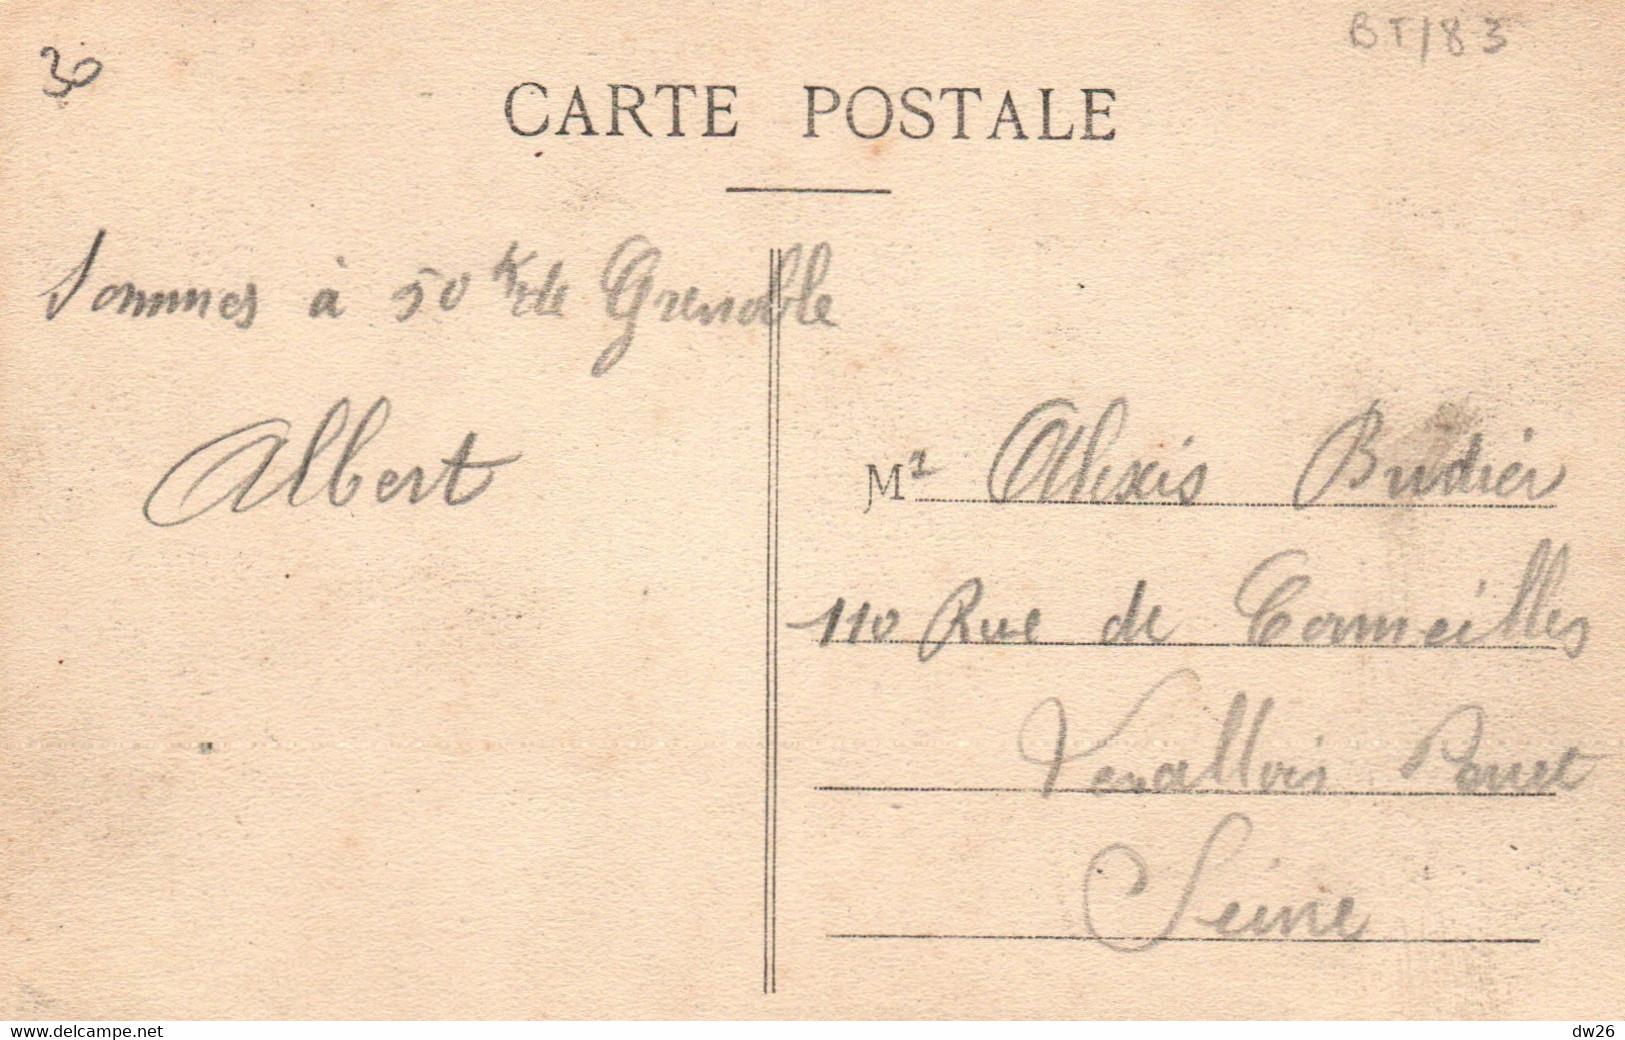 30
BT/83
CARTE POSTALE
Sommes à 50 k de Grenoble
Albert
Mr Alexis Budier
110 Rue de Cormeilles
Levallois Perret
Seine
www.delcampe.net
dw26